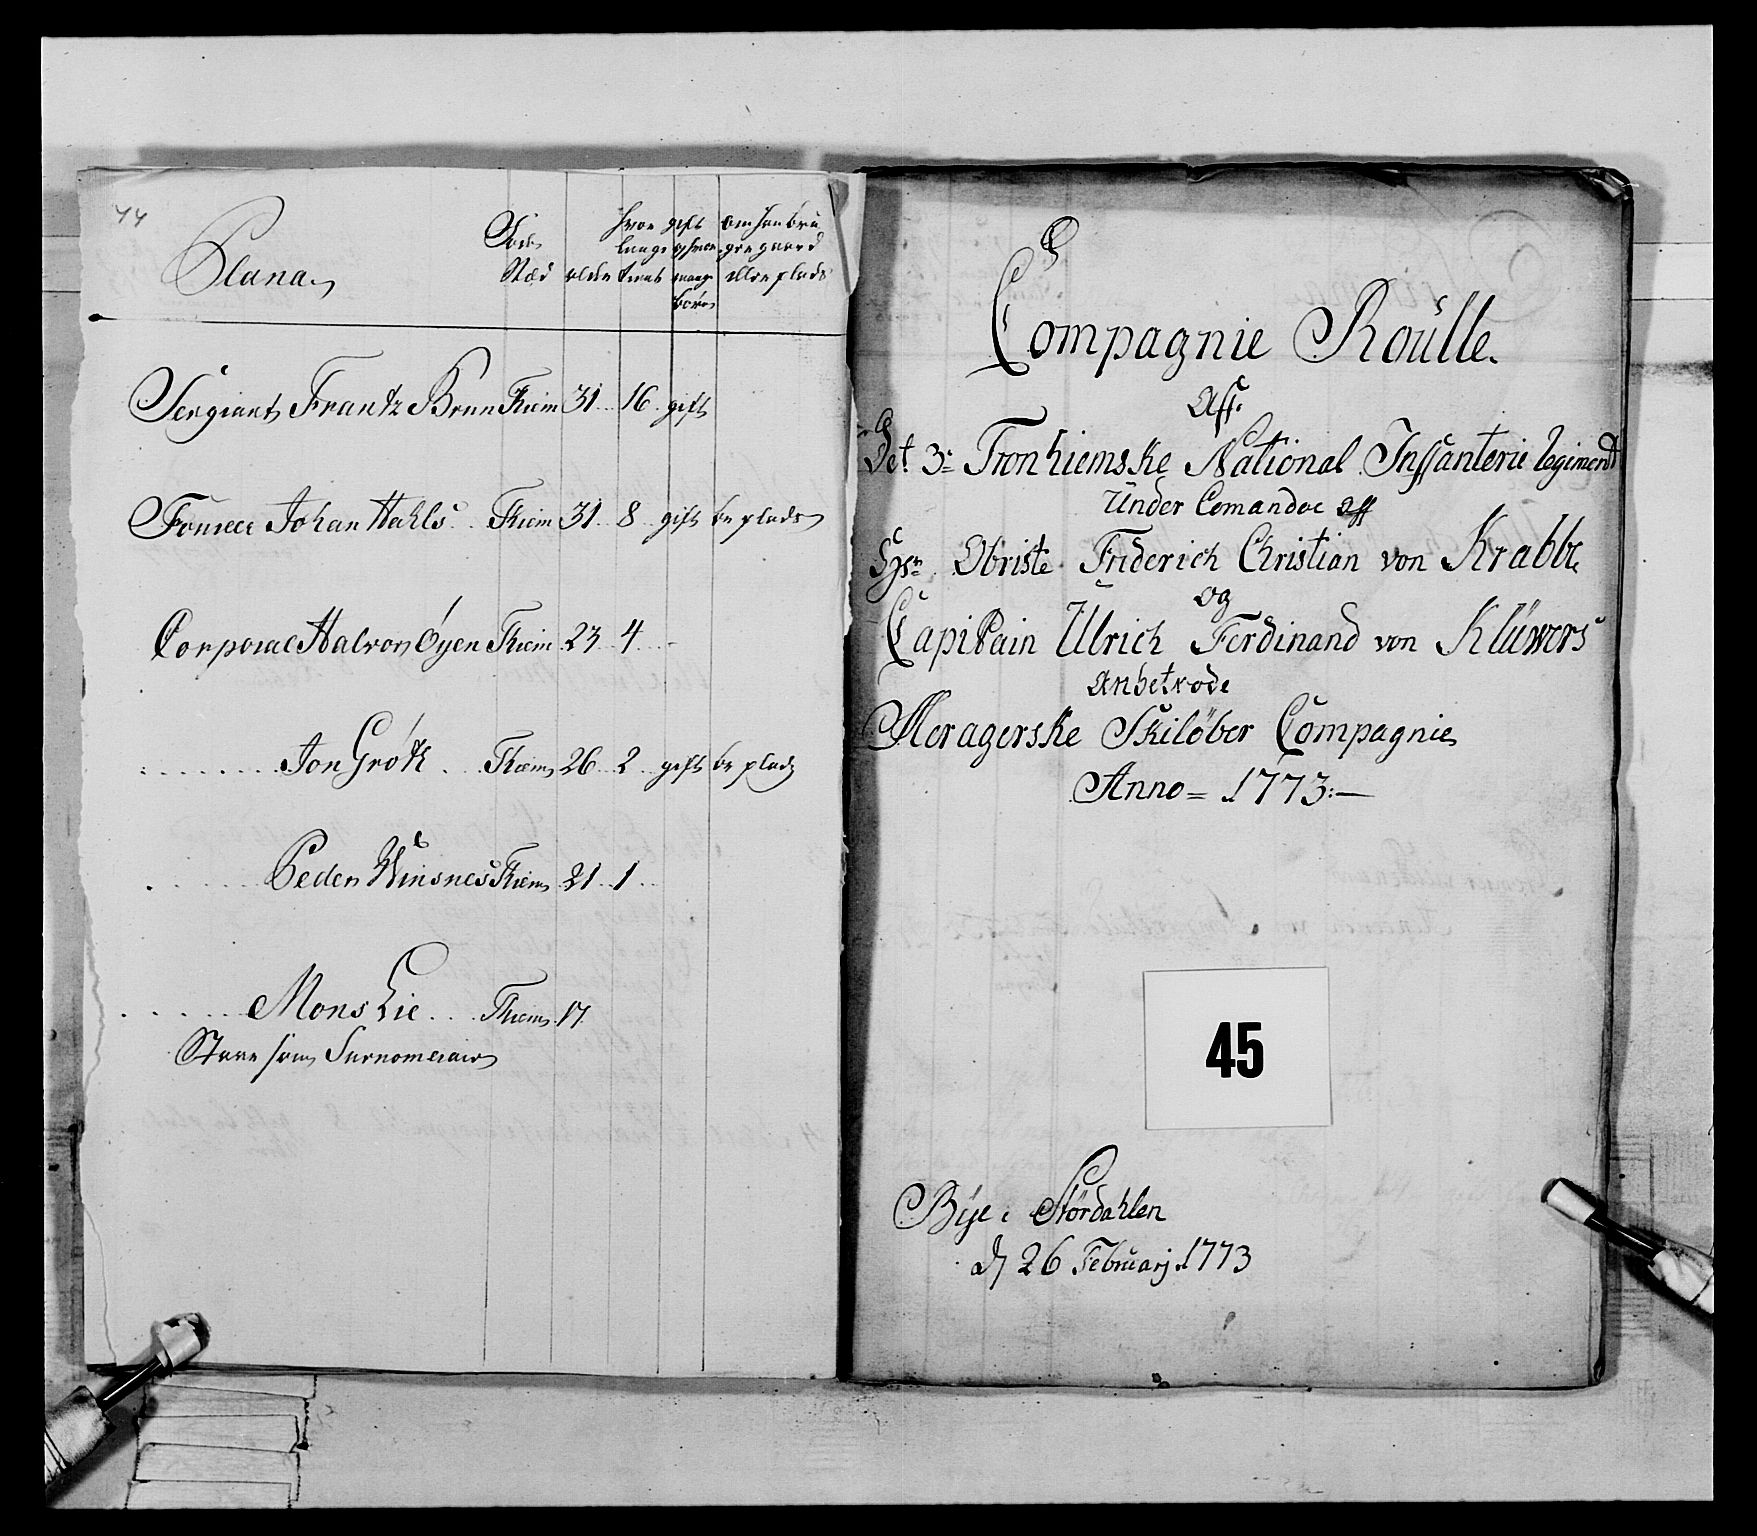 44
Plana
Föde Stæd
alder
hvor længe tient
gift og hvor mange börn
om han bru ger gaard eller plads
Sergiant Frantz Brun Thiem 31 16 gift
Foureer Johan Hahls Thiem 31 8 gift br plads
Corporal Halvor Öyen Thiem 23 4
Jon Gröt Thiem 26 2 gift br plads
Peder Winsnes Thiem 21 1
Mons Lie Thiem 17
Staar som Surnomerair
Compagnie Roülle.
Aff.
Det 3e Tronhiemske National Inffanterie Regiment
Under Comandoe aff
Obriste Friderich Christian von Krabbe
og
Capitain Ulrich Ferdinand von Klüwers
Anbetrode
Meragerske Skilöber Compagnie
Anno = 1773:—
45
Bÿe i Stördahlen
d 26 Februarj 1773